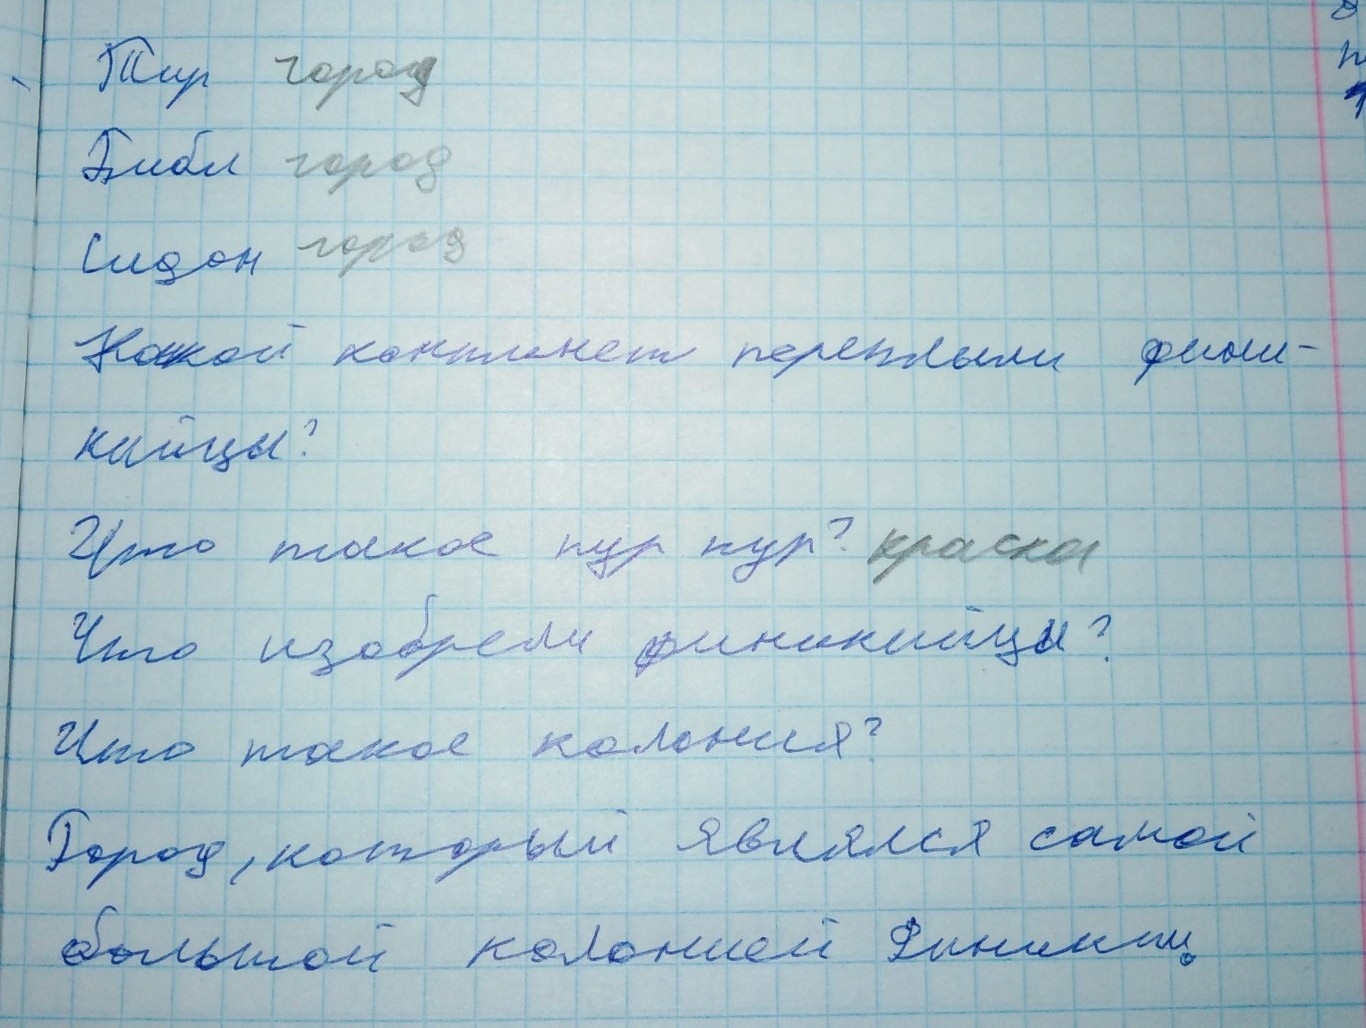 Тир город
Библ город
Сидон город
Какой континет переплыли фини-
кийцы?
Что такое пур пур? краска
Что изобрели финикийцы?
Что такое колония?
Город, который являлся самой
большой колонией Финикиц